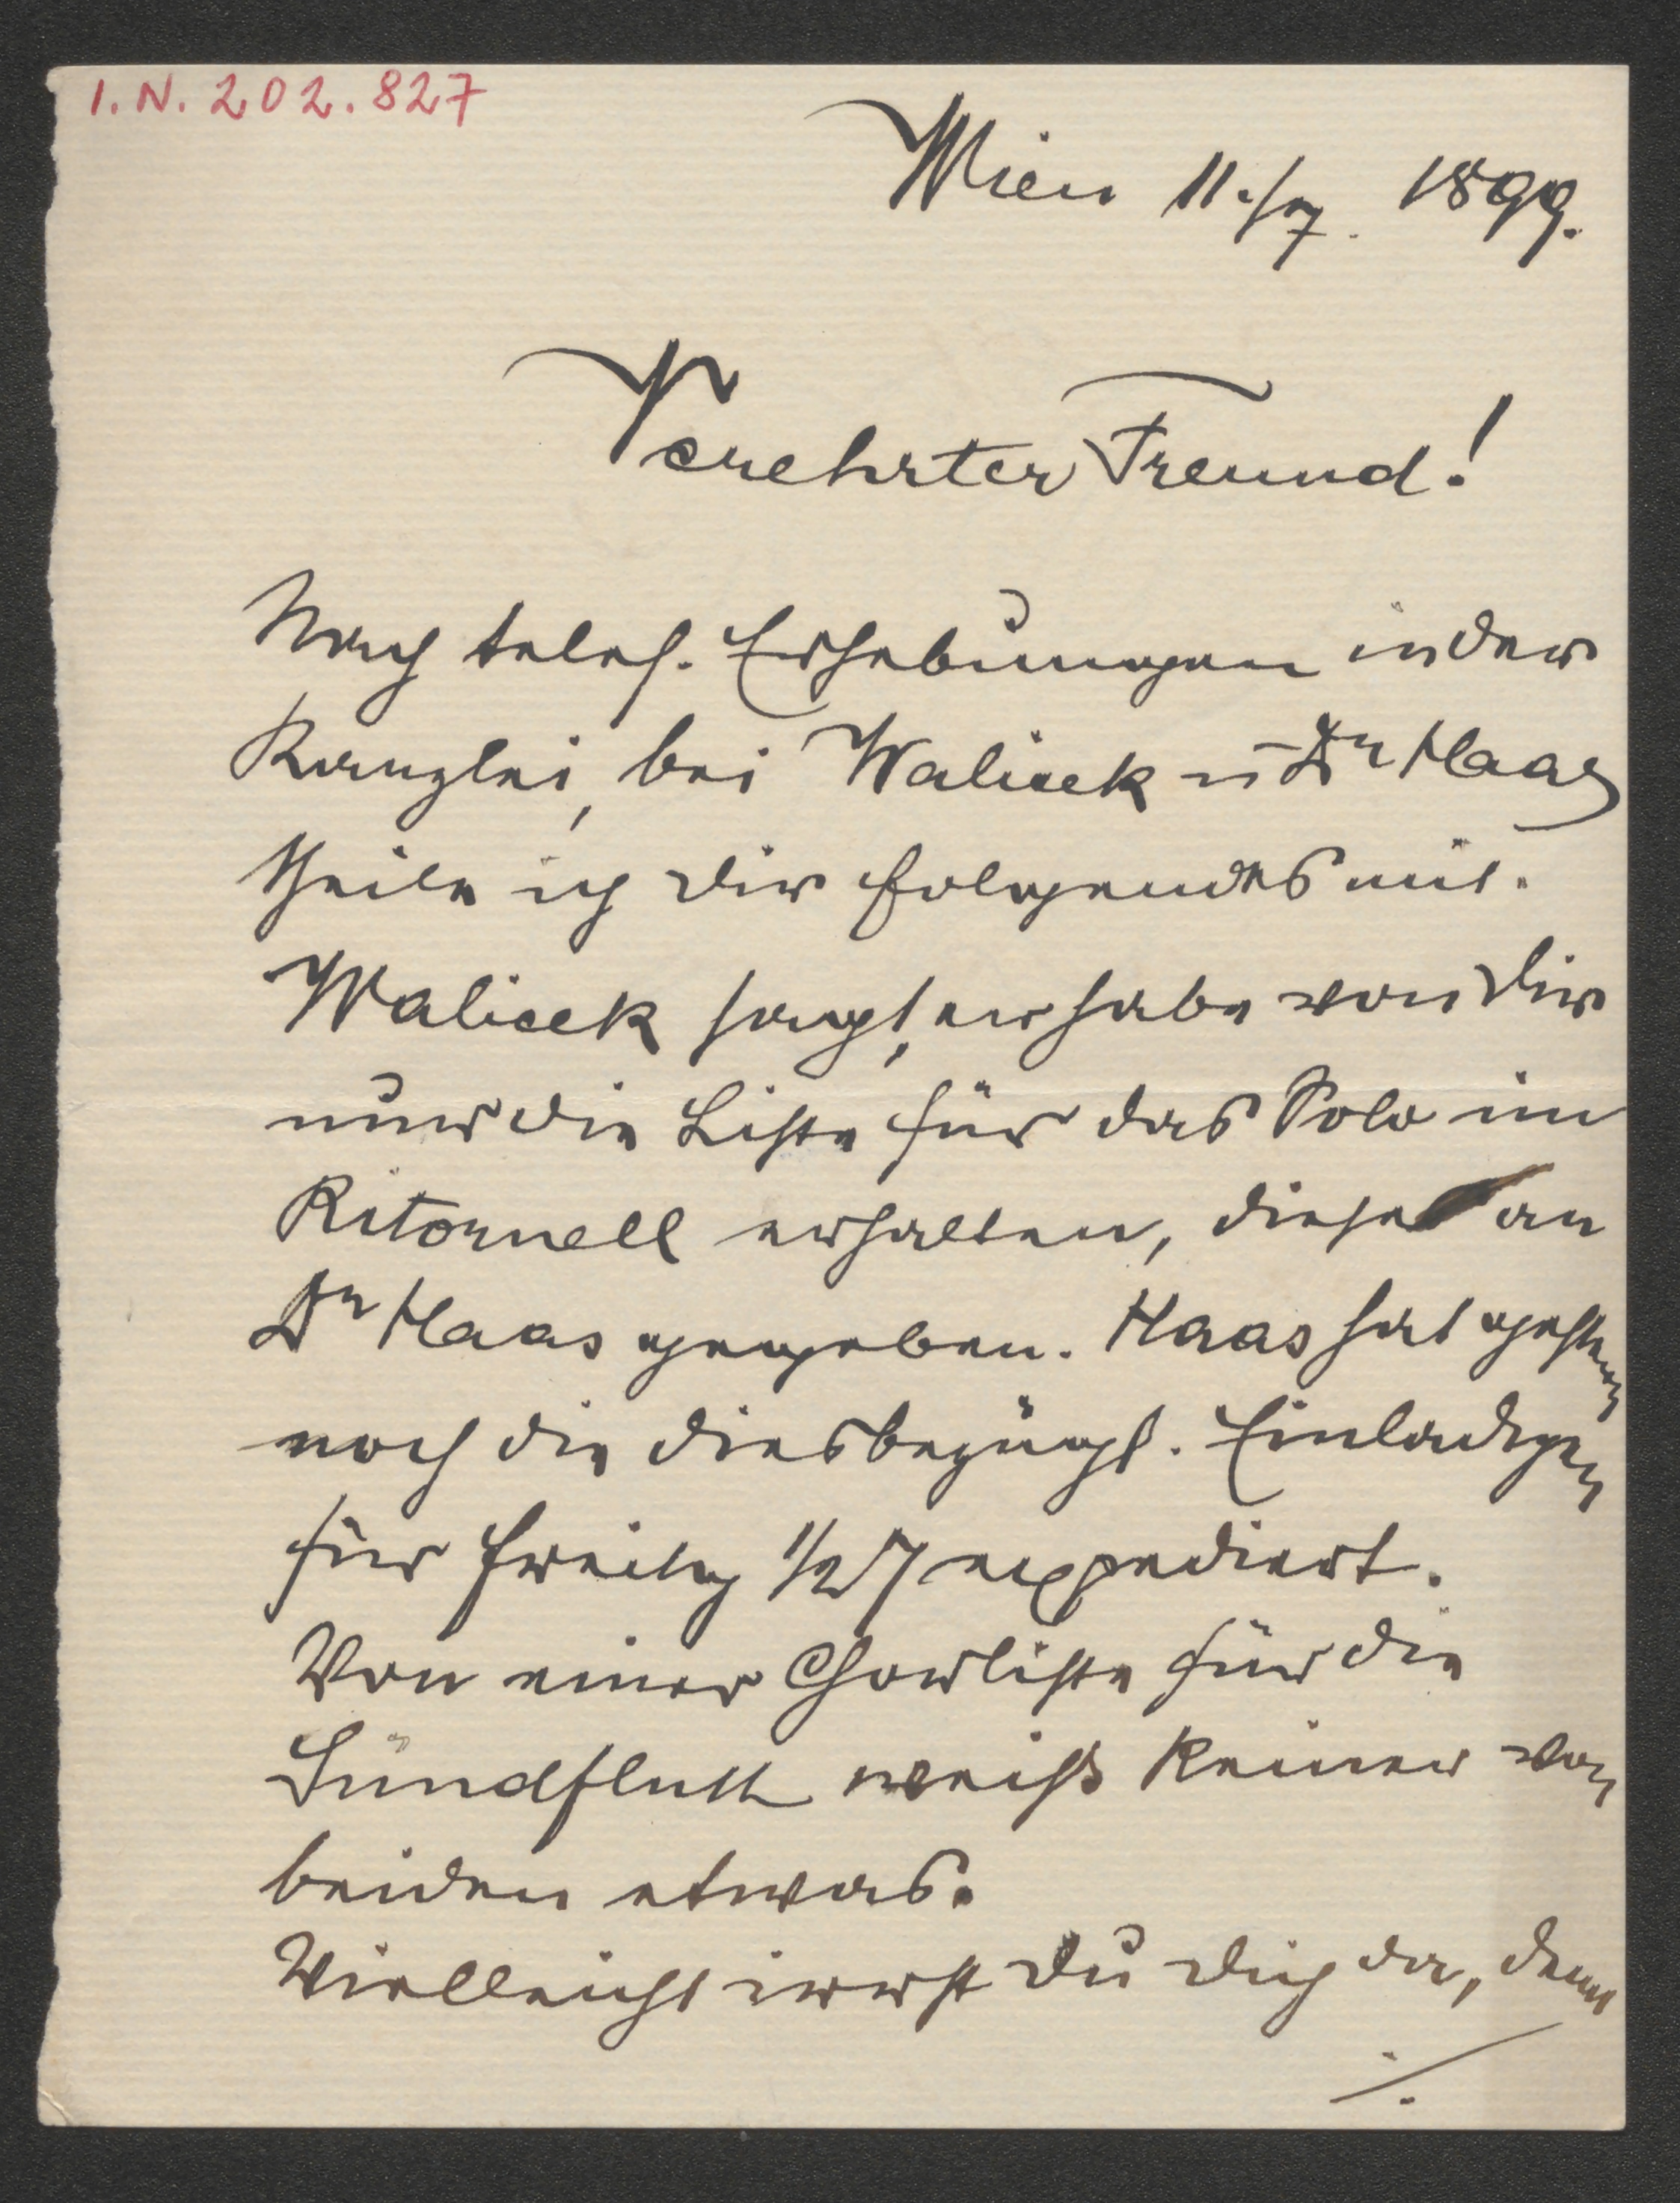 I.N. 202.827
Wien 11./7. 1899.
Verehrter Freund!
Nach telef. Erhebungen in der
Kanzlei, bei Walicek u Dr Haas
theile ich Dir folgendes mit.
Walicek sagt, er habe von Dir
nur die Liste für das Solo im
Ritornell erhalten, diese an
Dr Haas gegeben. Haas hat gestern
noch die diesbezügl. Einladgen
für Freitag 1/2 7 expediert.
Von einer Chorliste für die
Sündfluth weiß keiner von
beiden etwas.
Vielleicht irrst Du Dich da, denn
./.